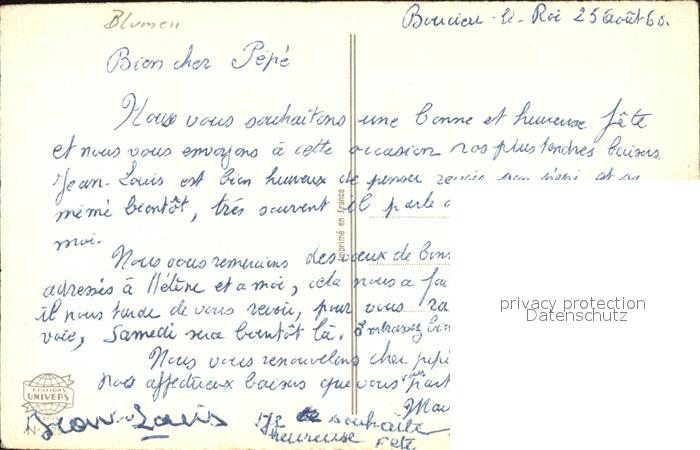 Blumen
Boucieu-le-Roi 25 Août 60.
Bien cher Pépé
Nous vous souhaitons une bonne et heureuse fête
et nous vous envoyons à cette occasion nos plus tendres baisers.
Jean-Louis est bien heureux de penser revoir son pépé et sa
mémé bientôt, très souvent il parle
moi.
Nous vous remercions des vœux de bons
adressés à Hélène et a moi, cela nous a fai
il nous tarde de vous revoir, pour vous ra
voie, Samedi sera bientôt là. Embrassez bien
Nous vous renouvelons cher pépé
nos affectueux baisers que vous
Imprimé en France
EDITIONS
UNIVERS
PARIS
Jean-Louis
je te souhaite
heureuse Fête
privacy protection
Datenschutz